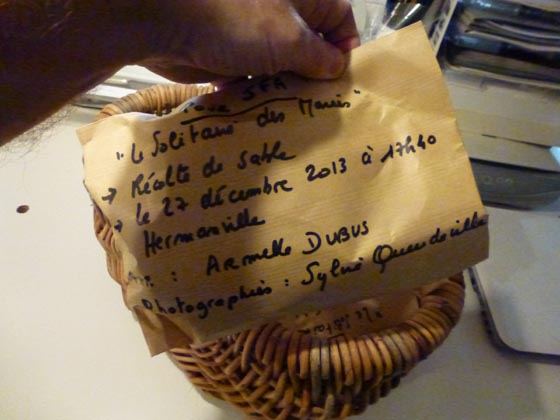 Pour JFA
"Le Solitaire des Marais"
→ Récolte de Sable
→ le 27 décembre 2013 à 17h40
Hermanville
: Armelle DUBUS
Photographies : Sylvie Quendeville